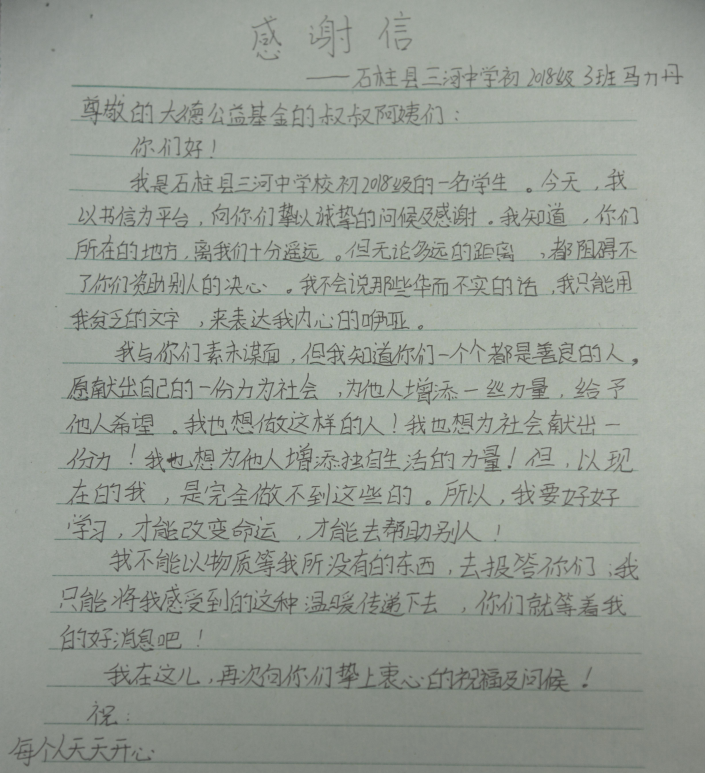 感谢信
——石柱县三河中学初2018级3班马力丹
尊敬的大德公益基金的叔叔阿姨们：
你们好！
我是石柱县三河中学校初2018级的一名学生。今天，我
以书信为平台，向你们挚以诚挚的问候及感谢。我知道，你们
所在的地方，离我们十分遥远。但无论多远的距离，都阻碍不
了你们资助别人的决心。我不会说那些华而不实的话，我只能用
我贫乏的文字，来表达我内心的咿亚。
我与你们素未谋面，但我知道你们一个个都是善良的人，
愿献出自己的一份力为社会，为他人增添一丝力量，给予
他人希望。我也想做这样的人！我也想为社会献出一
份力！我也想为他人增添独自生活的力量！但，以现
在的我，是完全做不到这些的。所以，我要好好
学习，才能改变命运，才能去帮助别人！
我不能以物质等我所没有的东西，去报答你们；我
只能将我感受到的这种温暖传递下去，你们就等着我
的好消息吧！
我在这儿，再次向你们挚上衷心的祝福及问候！
祝：
每个人天天开心